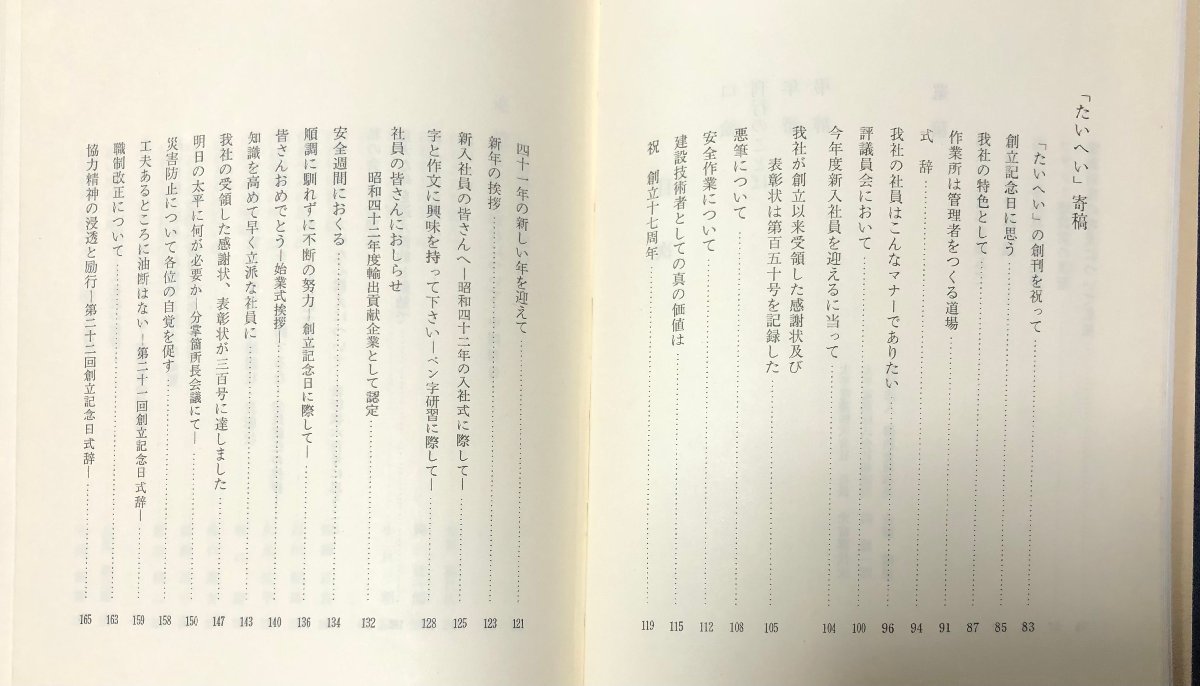 「たいへい」寄稿
「たいへい」の創刊を祝って…… 83
創立記念日に思う…… 85
我社の特色として…… 87
作業所は管理者をつくる道場…… 91
式　辞…… 94
我社の社員はこんなマナーでありたい…… 96
評議員会において…… 100
今年度新入社員を迎えるに当って…… 104
我社が創立以来受領した感謝状及び
表彰状は第百五十号を記録した…… 105
悪筆について…… 108
安全作業について…… 112
建設技術者としての真の価値は…… 115
祝　創立十七周年…… 119
四十一年の新しい年を迎えて…… 121
新年の挨拶…… 123
新入社員の皆さんへ—昭和四十二年の入社式に際して—…… 125
字と作文に興味を持って下さい—ペン字研習に際して—…… 128
社員の皆さんにおしらせ
昭和四十二年度輸出貢献企業として認定…… 132
安全週間におくる…… 134
順調に馴れずに不断の努力—創立記念日に際して—…… 136
皆さんおめでとう—始業式挨拶—…… 140
知識を高めて早く立派な社員に…… 143
我社の受領した感謝状、表彰状が三百号に達しました…… 147
明日の太平に何が必要か—分掌箇所長会議にて—…… 150
災害防止について各位の自覚を促す…… 158
工夫あるところに油断はない—第二十一回創立記念日式辞—…… 159
職制改正について…… 163
協力精神の浸透と励行—第二十二回創立記念日式辞—…… 165